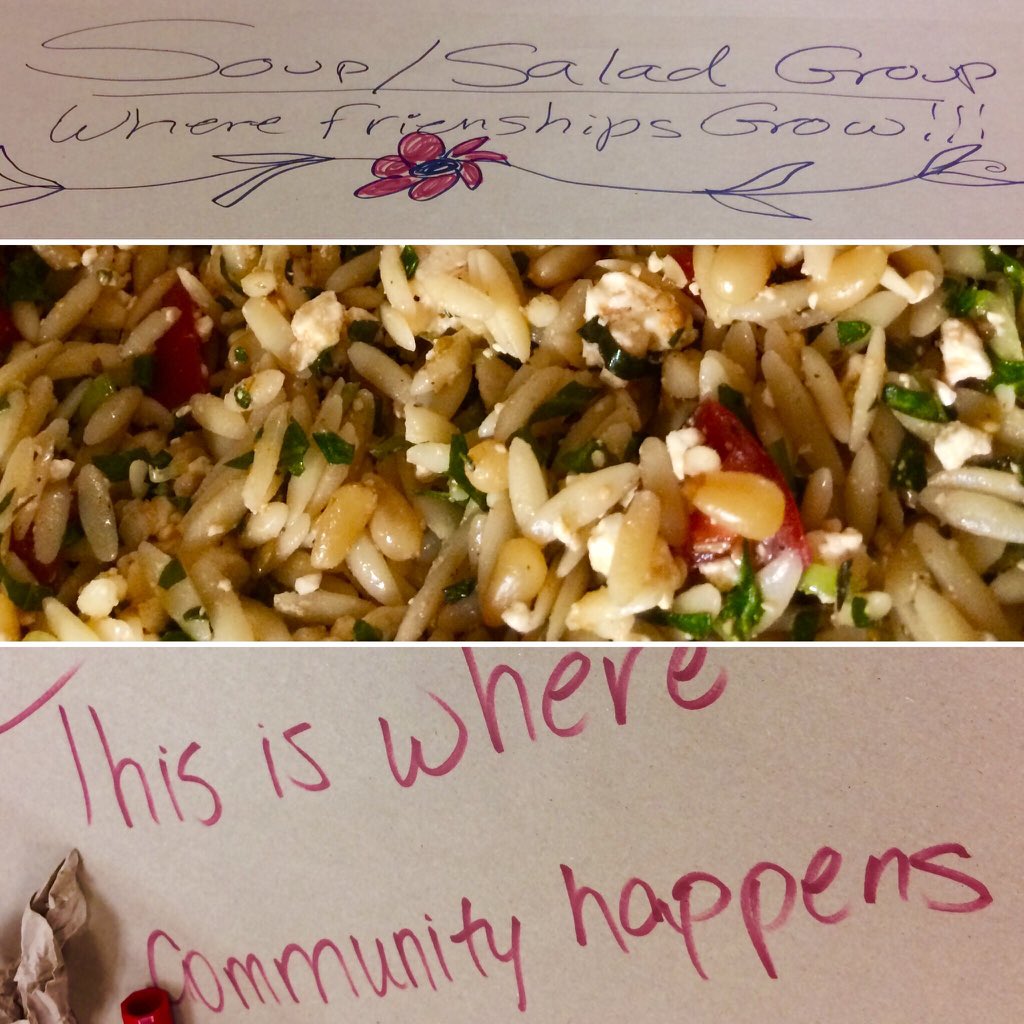 Soup/Salad Group
Where frienships Grow!!!
This is where
Community happens